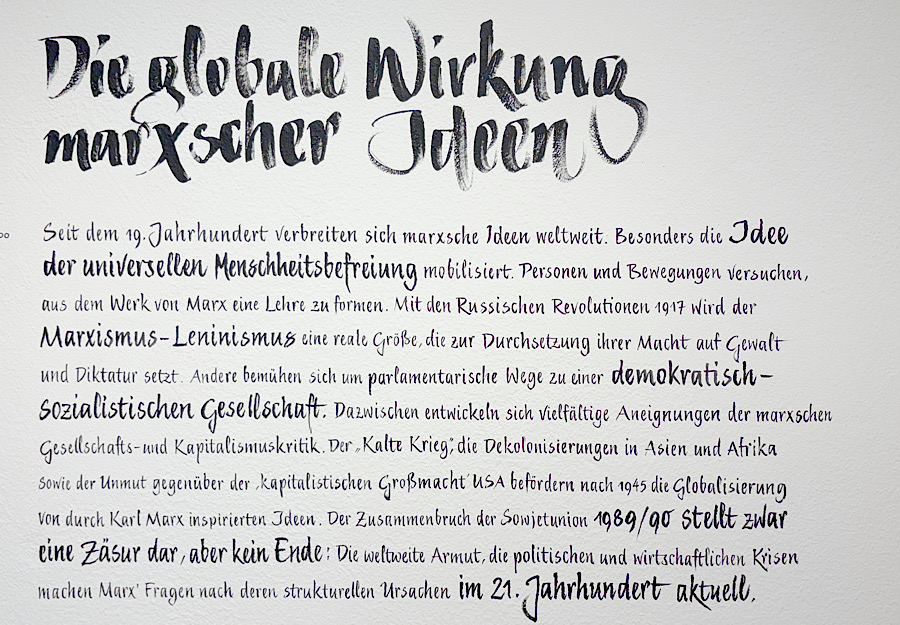 Die globale Wirkung
marxscher Ideen
Seit dem 19. Jahrhundert verbreiten sich marxsche Ideen weltweit. Besonders die Idee
der universellen Menschheitsbefreiung mobilisiert. Personen und Bewegungen versuchen,
aus dem Werk von Marx eine Lehre zu formen. Mit den Russischen Revolutionen 1917 wird der
Marxismus-Leninismus eine reale Größe, die zur Durchsetzung ihrer Macht auf Gewalt
und Diktatur setzt. Andere bemühen sich um parlamentarische Wege zu einer demokratisch-
sozialistischen Gesellschaft. Dazwischen entwickeln sich vielfältige Aneignungen der marxschen
Gesellschafts- und Kapitalismuskritik. Der „Kalte Krieg“, die Dekolonisierungen in Asien und Afrika
sowie der Unmut gegenüber der ‚kapitalistischen Großmacht‘ USA befördern nach 1945 die Globalisierung
von durch Karl Marx inspirierten Ideen. Der Zusammenbruch der Sowjetunion 1989/90 stellt zwar
eine Zäsur dar, aber kein Ende: Die weltweite Armut, die politischen und wirtschaftlichen Krisen
machen Marx' Fragen nach deren strukturellen Ursachen im 21. Jahrhundert aktuell.